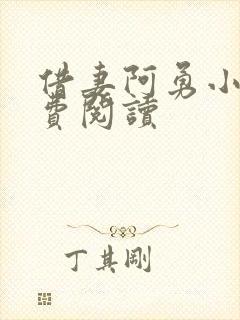 借妻阿勇小
費閱讀
丁其剛